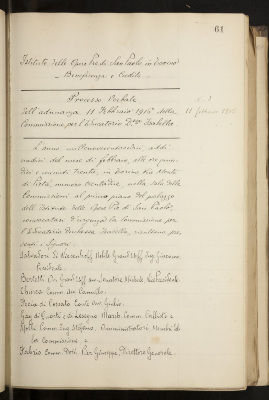 61
Istituto delle Opere Pie di San Paolo in Torino
Beneficenza e Credito
Processo Verbale
N. 3
dell'adunanza 11 Febbraio 1916 della
11 febbraio 1916
Commissione per l'Educatorio D.ssa Isabella.
L'anno millenovecentosedici, addì
undici del mese di febbraio, alle ore quin-
dici e minuti trenta, in Torino Via Monte
di Pietà, numero trentadue, nella sala delle
Commissioni al primo piano del palazzo
dell'Istituto delle Opere Pie di San Paolo,
convocatasi d'urgenza la Commissione per
l'Educatorio Duchessa Isabella, risultano pre-
senti i Signori:
Salvadori di Wiesenhoff Nobile Grand'Uff. Ing. Giacomo
Presidente
Bertetti Gr. Uff. Senatore Michele, Vice Presidente
Chiesa Comm. Avv. Camillo
Prever di Cossato Conte Avv. Giulio
Gay di Quarti e di Lesegno March. Comm. Calisto e
Molli Comm. Ing. Stefano, Amministratori Membri del-
la Commissione e
Salerio Comm. Dott. Pier Giuseppe Direttore Generale.